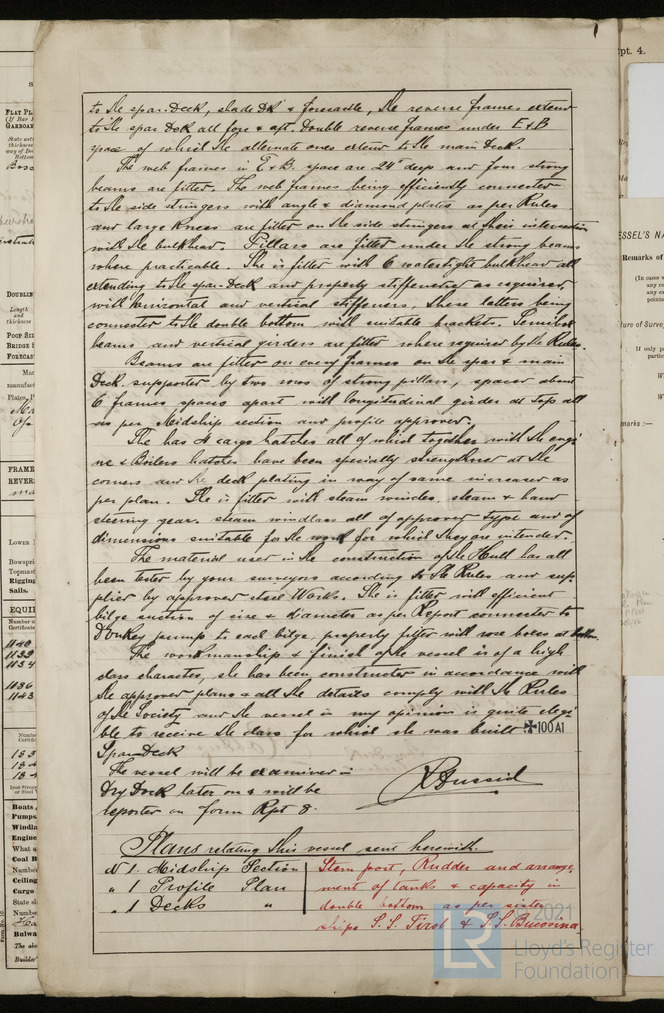 to the spar. Deck, shade Dk & forecastle, the reverse frames extend
to the spar Deck all fore & aft. Double reverse frames under E & B
space of which the alternate ones extend to the main Deck.
The web frames in E & B. space are 24" deep and four strong
beams are fitted. The web frames being efficiently connected
to the side stringers with angle & diamond plates as per Rules
and large knees are fitted on the side stringers at their intersection
with the bulkhead. Pillars are fitted under the strong beams
where practicable. She is fitted with 6 watertight bulkhead all
extending to the spar-Deck and properly stiffened as required,
with horizontal and vertical stiffeners, these latters being
connected to the double bottom with suitable brackets. Semibox
beams and vertical girders are fitted where required by the Rules.
Beams are fitted on every frames on the spar & main
Deck. supported by two rows of strong pillars, spaced about
6 frames spaces apart with longitudinal girder at top all
as per Midship section and profile approved.
The has 4 cargo hatches all of which together with the engi
ne & Boilers hatches have been specially strengthened at the
corners and the deck plating in way of same increased as
per plan. She is fitted with steam wincles, steam & hand
steering gear. steam windlass all of approved type and of
dimensions suitable for the work for which they are intended.
The material used in the construction of the Hull has all
been tested by your surveyors according to the Rules and sup-
plied by approved steel Works. She is fitted with efficient
bilge suction of size & diameter as per Report connected to
Donkey pump to each bilge, properly fitted with rose boxes at bottom.
The workmanship & finish of the vessel is of a high
class character, she has been constructed in accordance with
the approved plans & all the details comply with the Rules
of the Society and the vessel in my opinion is quite elegi
ble to receive the class for which she was built ✠100A1
Spar Deck
The vessel will be examined in
Dry Dock later on & will be
reported on form Rpt 8.
Plans relating this vessel sent herewith.
N 1. Midship Section
" 1 Profile Plan
" 1 Decks "
Stern post, Rudder and arrange-
ment of tanks & capacity in
double bottom as per sister
ships S.S. Tirol & S.S. Bucovina.
© 2021
LR
Lloyd's Register
Foundation
FLAT PL
GARBOAR
DOUBLIN
Length
and
thickness
POOP SID
BRIDGE S
FORECAST
manufact
Plates, P
FRAME
REVER
LOWER
Bowspri
Topmast
Rigging
Sails.
EQUI
1140
1139
1134
1136
1143
Boats
Pumps
Windla
Engine
What a
Coal B
Number
Ceiling
Cargo
State siz
Number
Bulwa
The abo
Builder'
pt. 4.
ESSEL'S NA
Remarks of
(In cases w
any re
any es
points
ture of Survey
If only pa
partic
marks :—